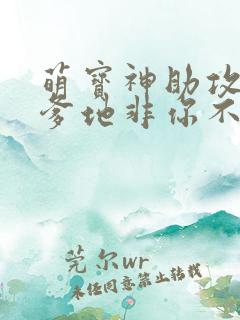 萌宝神助攻
爹地非你不
莞尔wr
未经同意禁止转载